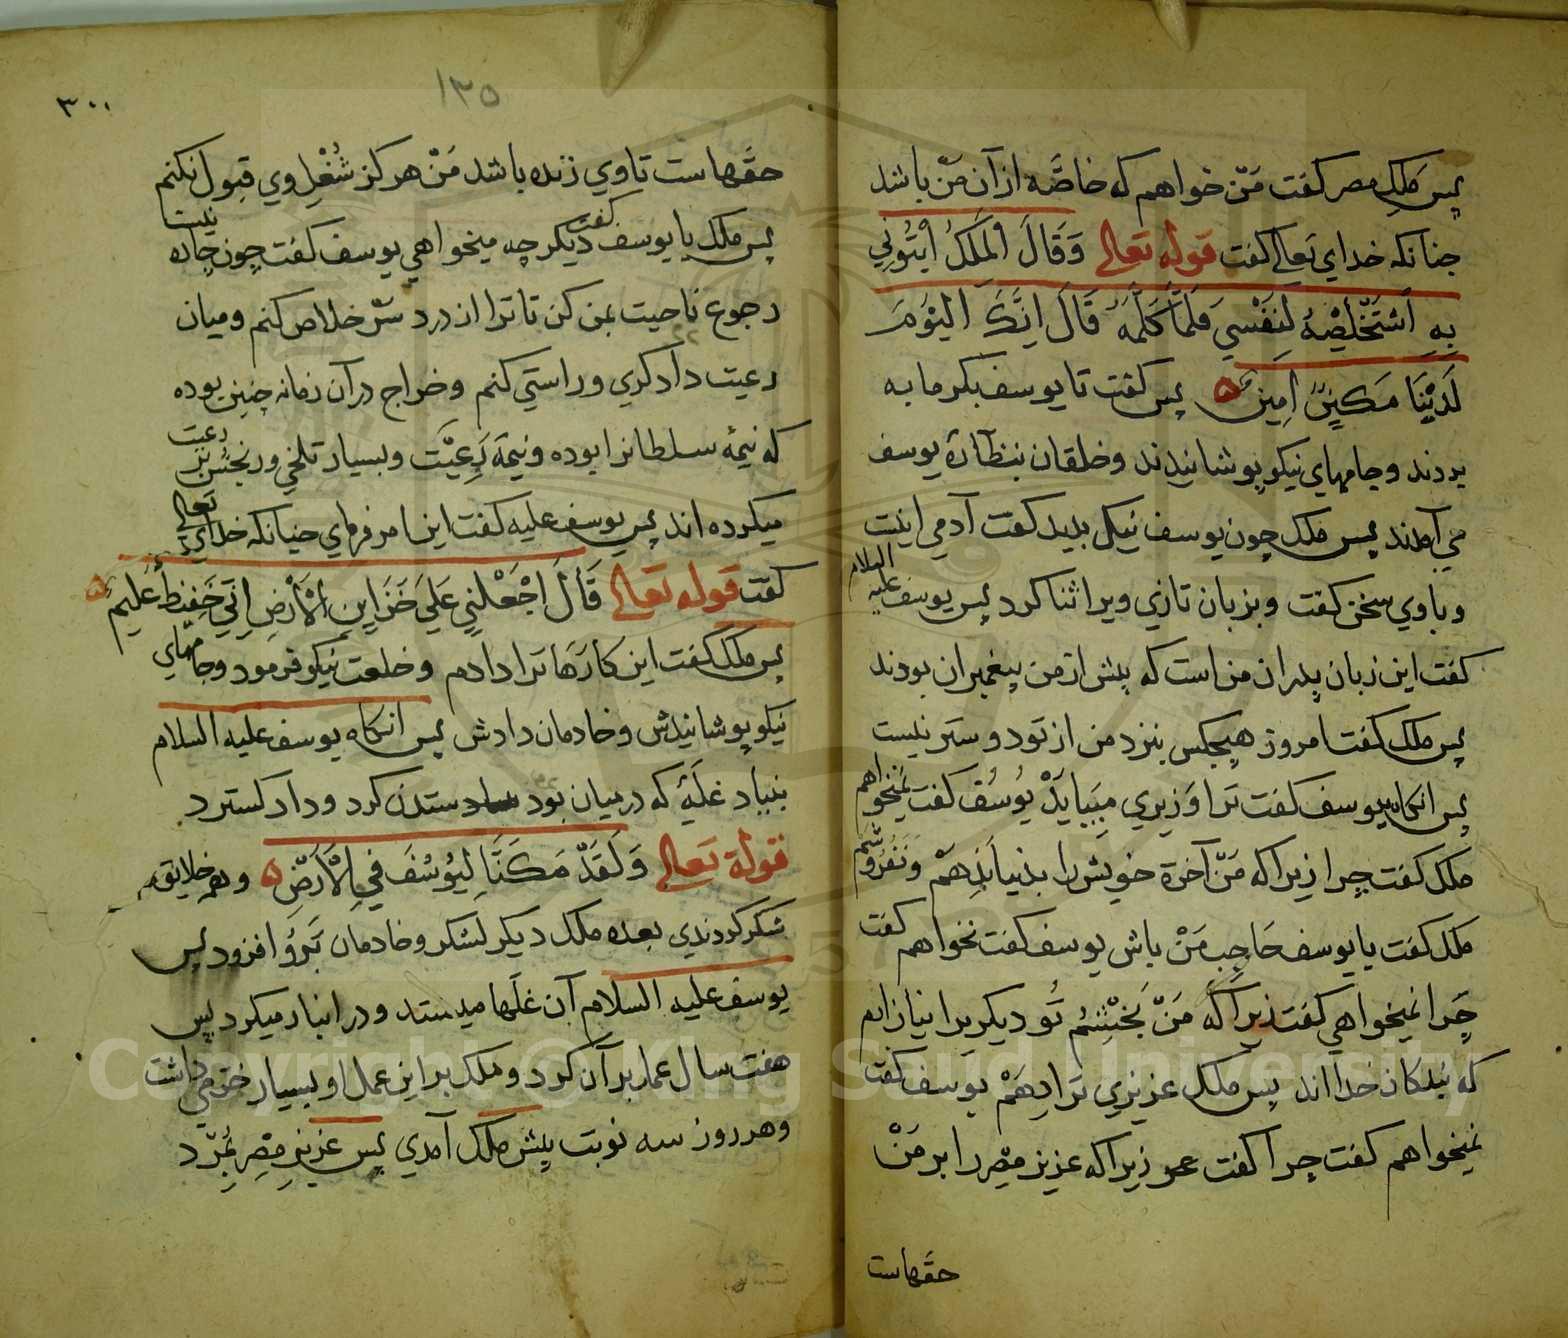 پس ملک مصر کفت مَنْ خواهم که خاصَّه از آن مَنْ باشد
چنانکه خدای تعالی کفت قوله تعالی وَقَالَ الْمَلِكُ ائْتُونِي
بِهِ اَسْتَخْلِصْهُ لِنَفْسِي فَلَمَّا كَلَّمَهُ قَالَ اِنَّكَ الْيَوْمَ
لَدَيْنَا مَكِينٌ اَمِينٌ ۵ پس کفت تا یوسف بکرمابه
بردند و جامهای نیکو پوشانیدند و خلقان بنظّارهٔ یوسف
می آمدند پس ملک چون یوسف نیکی بدید کفت آدمی اینت
و باوی سخن کفت و بزبان تازی ویرا ثنا کرد پس یوسف علیه السلام
کفت این زبان پدران من است که پیش از من پیغمبران بودند
پس ملک کفت امروز هیچکس بنزد من از تو دوستر نیست
پس انکاه یوسف کفت ترا وَزیری میباید یُوسُف کفت نمیخواهم
ملک کفت چرا زیراکه مَنْ آخرة خویش را بدنیا نَدِهَمْ و نفروشم
ملک کفت یا یوسف حَاجِب مَنْ باش یوسف کفت نخواهم کفت
چَرا نمیخواهی کفت زیراکه مَنْ
که بندکان خدا اند پس ملک عزیزی ترا دِهَمْ یوسف کفت
نمیخواهم کفت چرا کفت زیراکه عزیز مِصْر را بر مَنْ
حقّهاست
۳۰۰
۱۳۵
حقّهاست تا وی زنده باشد مَنْ هرکز شُغْلِ وی قبول نکنم
پس ملک با یوسف کفت دیکر چه میخواهی یوسف کفت چون چاره نیست
رجوع ناحیت بمن کن تا ترا از درد سَرْ خلاص کنم و میان
رعیت دادکری و راستی کنم و خراج در آن زمانه چنین بوده
که نیمهٔ سلطانرا بوده و نیمهٔ رَعِیَّت و بسیار تلخی و رنجش بر رعیت
میکرده اند پس یوسف علیه کفت این امر فرمای چنانکه خدای تعالی
کفت قوله تعالی قَالَ اجْعَلْنِي عَلَى خَزَايِنِ الْاَرْضِ اِنِّي حَفِيظٌ عَلِيمٌ ۵
پس ملک کفت این کارها ترا دادم و خلعت نیکو فرمود و جامهای
نیکو پوشانیدش و خادمان دادش پس انکاه یوسف علیه السلام
بنیاد غلّهٔ که در میان بود ستدن کرد و داد کسترد
قوله تعالی وَلَقَدْ مَكَنَّا لِيُوسُفَ فِي الْاَرْضِ ۵ و همه خلایق
شکر کردندی بعده ملک دیکر لشکر و خادمان بَرو افزود پس
یوسف علیه السلام آن غلّها میستد و در انبار میکرد پس
هفت سال عمل بر آن کرد و ملک بر این عمل او بسیار خوشی داشت
و هر روز سه نوبت پیش ملک آمدی پس عزیزِ مِصْر بمُرْد
Copyright © King Saud University
1957